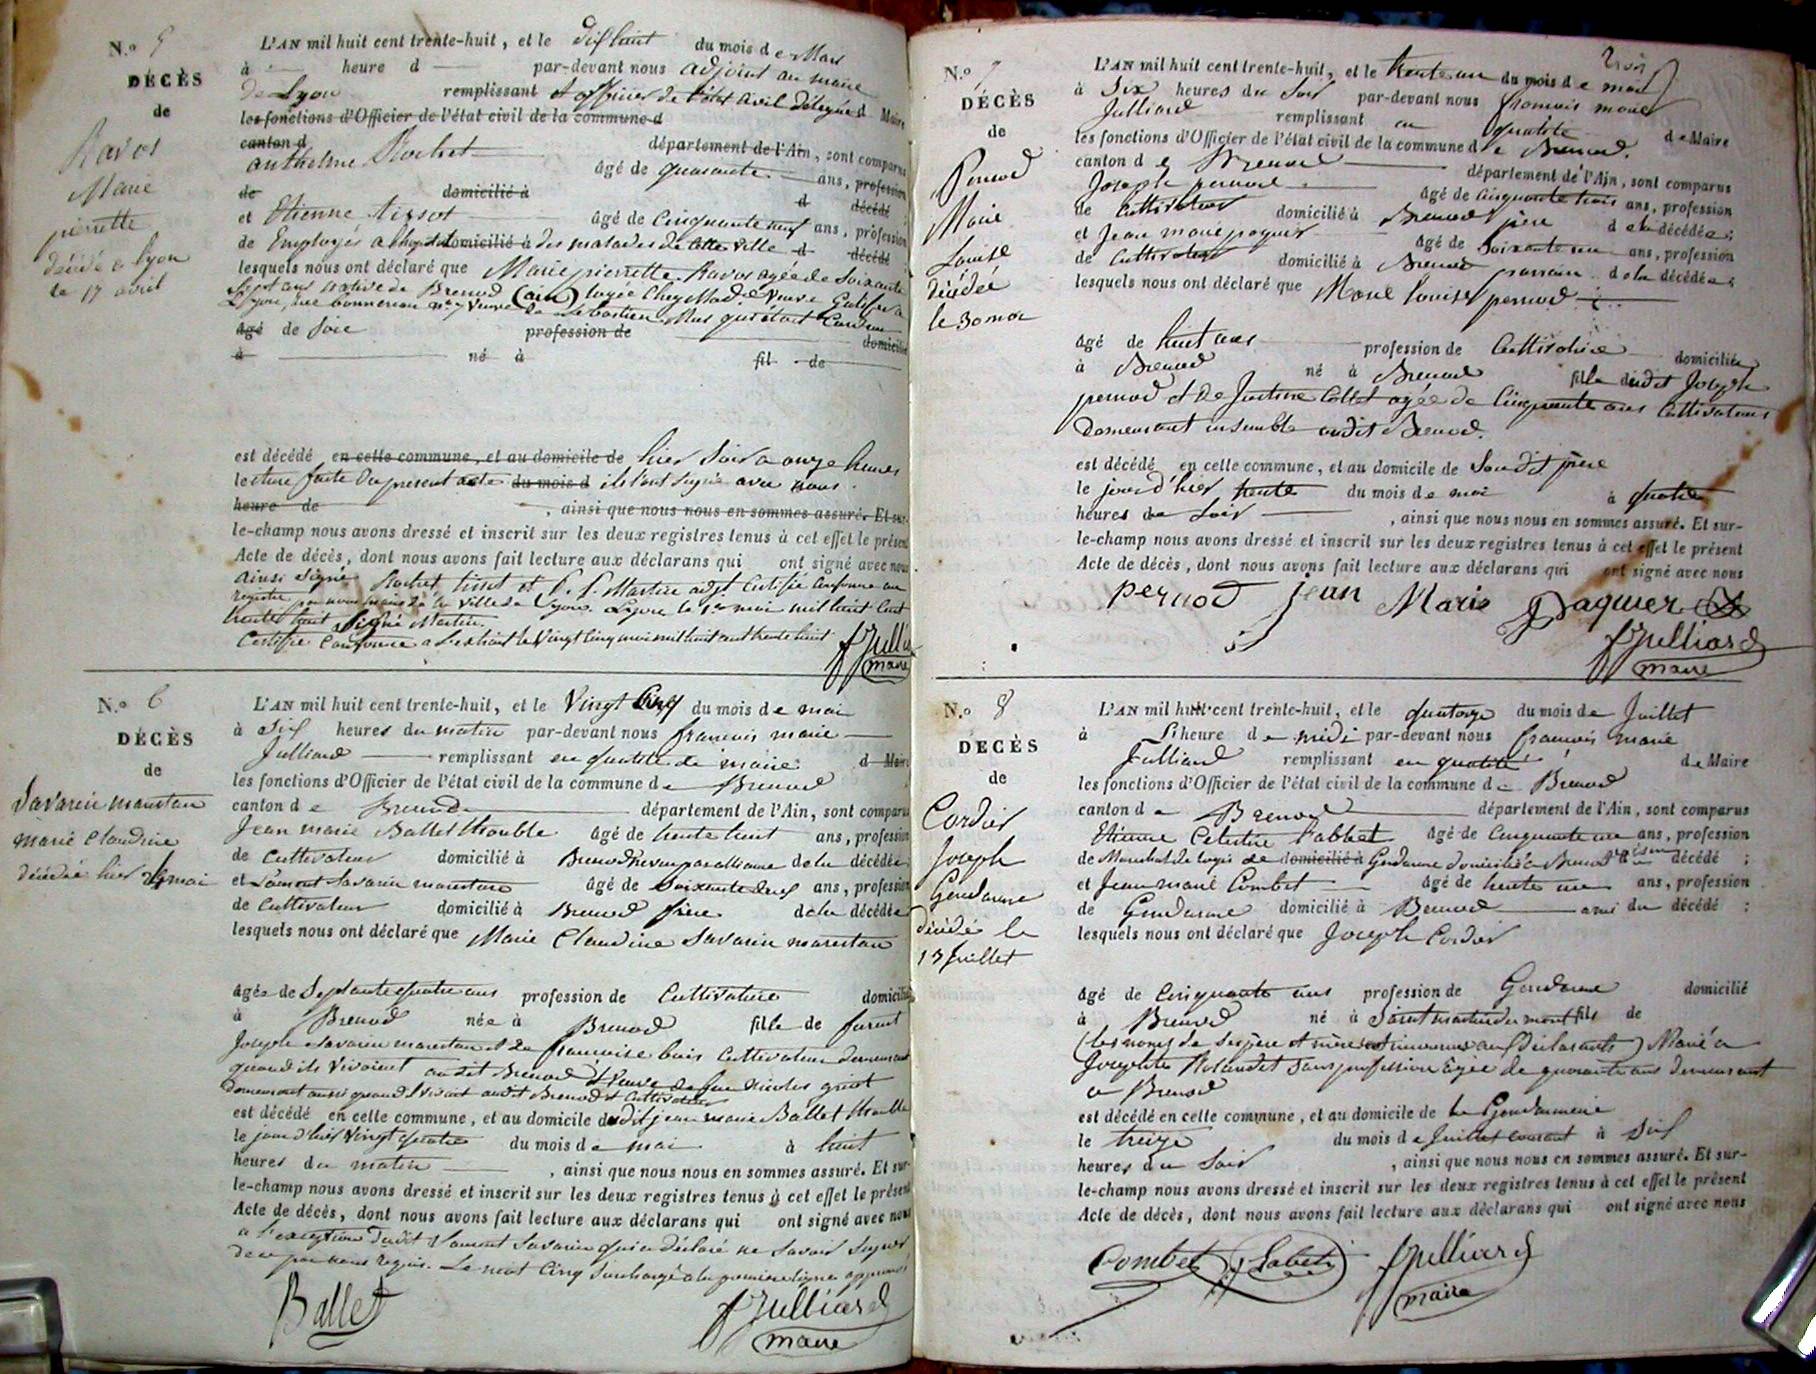 N.o 5
DÉCÈS
de
Ravos
Marie
pierrette
décédé a Lyon
le 17 avril
L'AN mil huit cent trente-huit, et le dix huit du mois de Mars
à heure d par-devant nous adjoint au maire
de Lyon remplissant d'officier de l'état civil délégué d Maire
les fonctions d'Officier de l'état civil de la commune d
canton d département de l'Ain, sont comparus
anthelme Rochet âgé de quarante ans, profession
de domicilié à d décédé
et Etienne tissot âgé de cinquante neuf ans, profession
de Employés a l'hopital domicilié à des malades de cette ville d décédé
lesquels nous ont déclaré que Marie pierrette Ravos agée de soixante
Sept ans native de Brenod (ain) logée chez Mad.e Veuve
Lyon, rue bonneveau n.o 7 Veuve de Sébastien Mus qui était
âgé de soie profession de domicilié
à né à fil de
est décédé en cette commune, et au domicile de hier soir a onze heures
lecture faite du present acte du mois d ils l'ont signé avec nous.
heure de , ainsi que nous nous en sommes assuré. Et sur-
le-champ nous avons dressé et inscrit sur les deux registres tenus à cet effet le présent
Acte de décès, dont nous avons fait lecture aux déclarans qui ont signé avec nous
ainsi signé Rochet tissot et Martin adjt Certifié conforme au
registre par nous maire de la ville de Lyon. Lyon le 1er mai mil huit cent
trente huit signé Martin.
Certifié conforme a l'extrait le vingt cinq mai mil huit cent trente huit
fJulliard
maire
N.o 6
DÉCÈS
de
Savarin marestan
marie claudine
décédée hier 24 mai
L'AN mil huit cent trente-huit, et le vingt cinq du mois de mai
à six heures du matin par-devant nous francois marie
Julliard remplissant en qualité de maire d Maire
les fonctions d'Officier de l'état civil de la commune de Brenod
canton de Brenod département de l'Ain, sont comparus
Jean marie Ballet thouble âgé de trente huit ans, profession
de cultivateur domicilié à Brenod neveu par alliance de la décédée
et Laurent Savarin marestan âgé de soixante deux ans, profession
de cultivateur domicilié à Brenod frère de la décédée
lesquels nous ont déclaré que Marie Claudine Savarin marestan
âgée de septante quatre ans profession de cultivatrice domicilié
à Brenod née à Brenod fille de furent
Joseph Savarin marestan et de francoise buis cultivateur demeurant
quand ils vivoient audit Brenod et Veuve de feu nicolas griot
demeurant aussi quand il vivait audit Brenod et cultivateur
est décédé en cette commune, et au domicile dudit jean marie Ballet thouble
le jour d'hier vingt quatre du mois de mai à huit
heures du matin , ainsi que nous nous en sommes assuré. Et sur-
le-champ nous avons dressé et inscrit sur les deux registres tenus à cet effet le présent
Acte de décès, dont nous avons fait lecture aux déclarans qui ont signé avec nous
a l'exception dudit Laurent Savarin qui a déclaré ne savoir signer
de ce par nous requis. Le mot cinq surchargé a la première ligne approuvé
Ballet fJulliard
maire
N.o 7
DÉCÈS
de
Pernod
Marie
Louise
décédée
le 30 mai
L'AN mil huit cent trente-huit, et le trente un du mois de mai
à six heures du soir par-devant nous francois marie
Julliard remplissant en qualité de Maire
les fonctions d'Officier de l'état civil de la commune de Brenod.
canton de Brenod département de l'Ain, sont comparus
Joseph pernod âgé de cinquante trois ans, profession
de cultivateur domicilié à Brenod père de la décédée;
et Jean marie paquier âgé de soixante un ans, profession
de cultivateur domicilié à Brenod parrain de la décédée;
lesquels nous ont déclaré que Marie louise pernod
âgé de huit ans profession de cultivatrice domiciliée
à Brenod né à Brenod fille dudit Joseph
pernod et de Justine Collet agée de cinquante ans cultivateurs
demeurant ensemble audit Brenod.
est décédé en cette commune, et au domicile de sondit père
le jour d'hier trente du mois de mai à quatre
heures de soir , ainsi que nous nous en sommes assuré. Et sur-
le-champ nous avons dressé et inscrit sur les deux registres tenus à cet effet le présent
Acte de décès, dont nous avons fait lecture aux déclarans qui ont signé avec nous
pernod jean Marie paquier
fJulliard
maire
N.o 8
DÉCÈS
de
Cordier
Joseph
Gendarme
décédé le
13 Juillet
L'AN mil huit cent trente-huit, et le quatorze du mois de Juillet
à heure de midi par-devant nous francois marie
Julliard remplissant en qualité de Maire
les fonctions d'Officier de l'état civil de la commune de Brenod
canton de Brenod département de l'Ain, sont comparus
Etienne Celestin Labbet âgé de cinquante un ans, profession
de Marechal de logis de domicilié à Gendarme domicilié à Brenod voisin du décédé;
et Jean marie Combet âgé de trente un ans, profession
de Gendarme domicilié à Brenod ami du décédé;
lesquels nous ont déclaré que Joseph Cordier
âgé de cinquante ans profession de Gendarme domicilié
à Brenod né à Saint martin du mont fils de
(les noms de ses père et mère inconnus aux déclarants) Marié a
Josephte Rolandet sans profession agée de quarante ans demeurant
a Brenod
est décédé en cette commune, et au domicile de la Gendarmerie
le treize du mois de Juillet courant à six
heures du soir , ainsi que nous nous en sommes assuré. Et sur-
le-champ nous avons dressé et inscrit sur les deux registres tenus à cet effet le présent
Acte de décès, dont nous avons fait lecture aux déclarans qui ont signé avec nous
Combet Labet fJulliard
maire